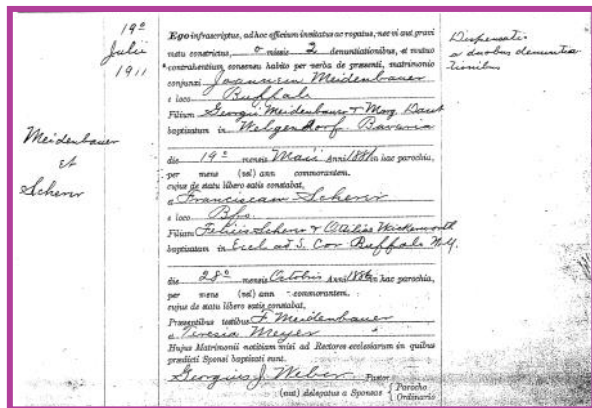 19º
Julii
1911
Meidenbauer
et
Scherer
Ego infrascriptus, ad hoc officium invitatus ac rogatus, nec vi aut gravi
metu constrictus, omissis 2 denuntiationibus, et mutuo
contrahentium consensu habito per verba de præsenti, matrimonio
conjunxi Joannem Meidenbauer
e loco Buffalo
Filium Georgii Meidenbauer & Marg. Daut
baptisatum in Welgendorf. Bavaria
die 19º mensis Maii Anni 1881 in hac parochia,
per mens (vel) ann commorantem.
cujus de statu libero satis constabat,
et Franciscam Scherer
e loco Bflo.
Filiam Felicis Scherer & Otiliae
baptisatam in Eccl. ad S. Cor Buffalo N.Y.
die 28º mensis Octobris Anni 1886 in hac parochia,
per mens (vel) ann commorantem.
cujus de statu libero satis constabat,
Præsentibus testibus F. Meidenbauer
et Teresia Meyer
Hujus Matrimonii notitiam misi ad Rectores ecclesiarum in quibus
prædicti Sponsi baptisati sunt.
Georgius J. Weber Pastor
(aut) delegatus a Sponsae { Parocho
Ordinario
Dispensatis
a duobus denuntia
tionibus